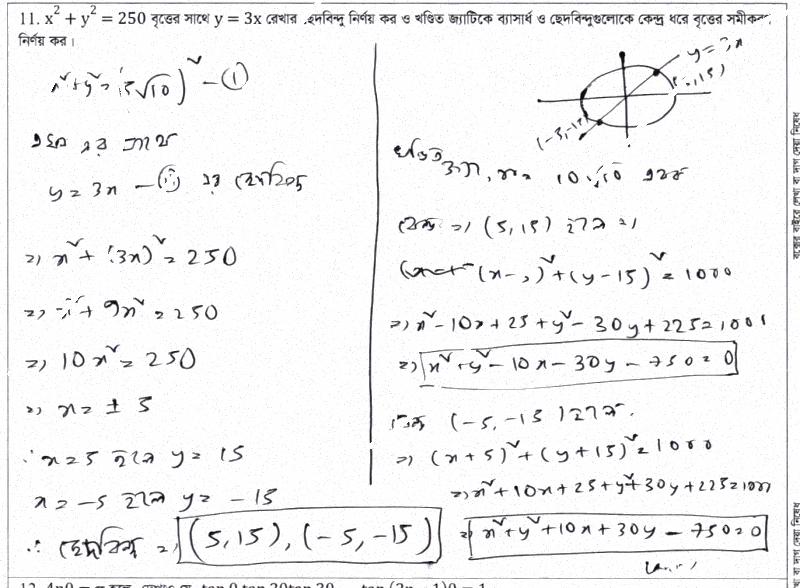 11. x² + y² = 250 বৃত্তের সাথে y = 3x রেখার ছেদবিন্দু নির্ণয় কর ও খণ্ডিত জ্যাটিকে ব্যাসার্ধ ও ছেদবিন্দুগুলোকে কেন্দ্র ধরে বৃত্তের সমীকরণ
নির্ণয় কর।
x² + y² = (5√10)² – ①
এখন এর সাথে
y = 3x – ② এর ছেদবিন্দু
⇒ x² + (3x)² = 250
⇒ x² + 9x² = 250
⇒ 10x² = 250
⇒ x = ± 5
∴ x = 5 হলে y = 15
x = -5 হলে y = -15
∴ ছেদবিন্দু ⇒ (5, 15), (-5, -15)
y = 3x
(5, 15)
(-5, -15)
খণ্ডিত জ্যা, = 10√10 একক
কেন্দ্র ⇒ (5, 15) হলে ⇒
(x - 5)² + (y - 15)² = 1000
⇒ x² - 10x + 25 + y² - 30y + 225 = 1000
⇒ x² + y² - 10x - 30y - 750 = 0
কেন্দ্র (-5, -15) হলে,
⇒ (x + 5)² + (y + 15)² = 1000
⇒ x² + 10x + 25 + y² + 30y + 225 = 1000
⇒ x² + y² + 10x + 30y - 750 = 0
(Ans.)